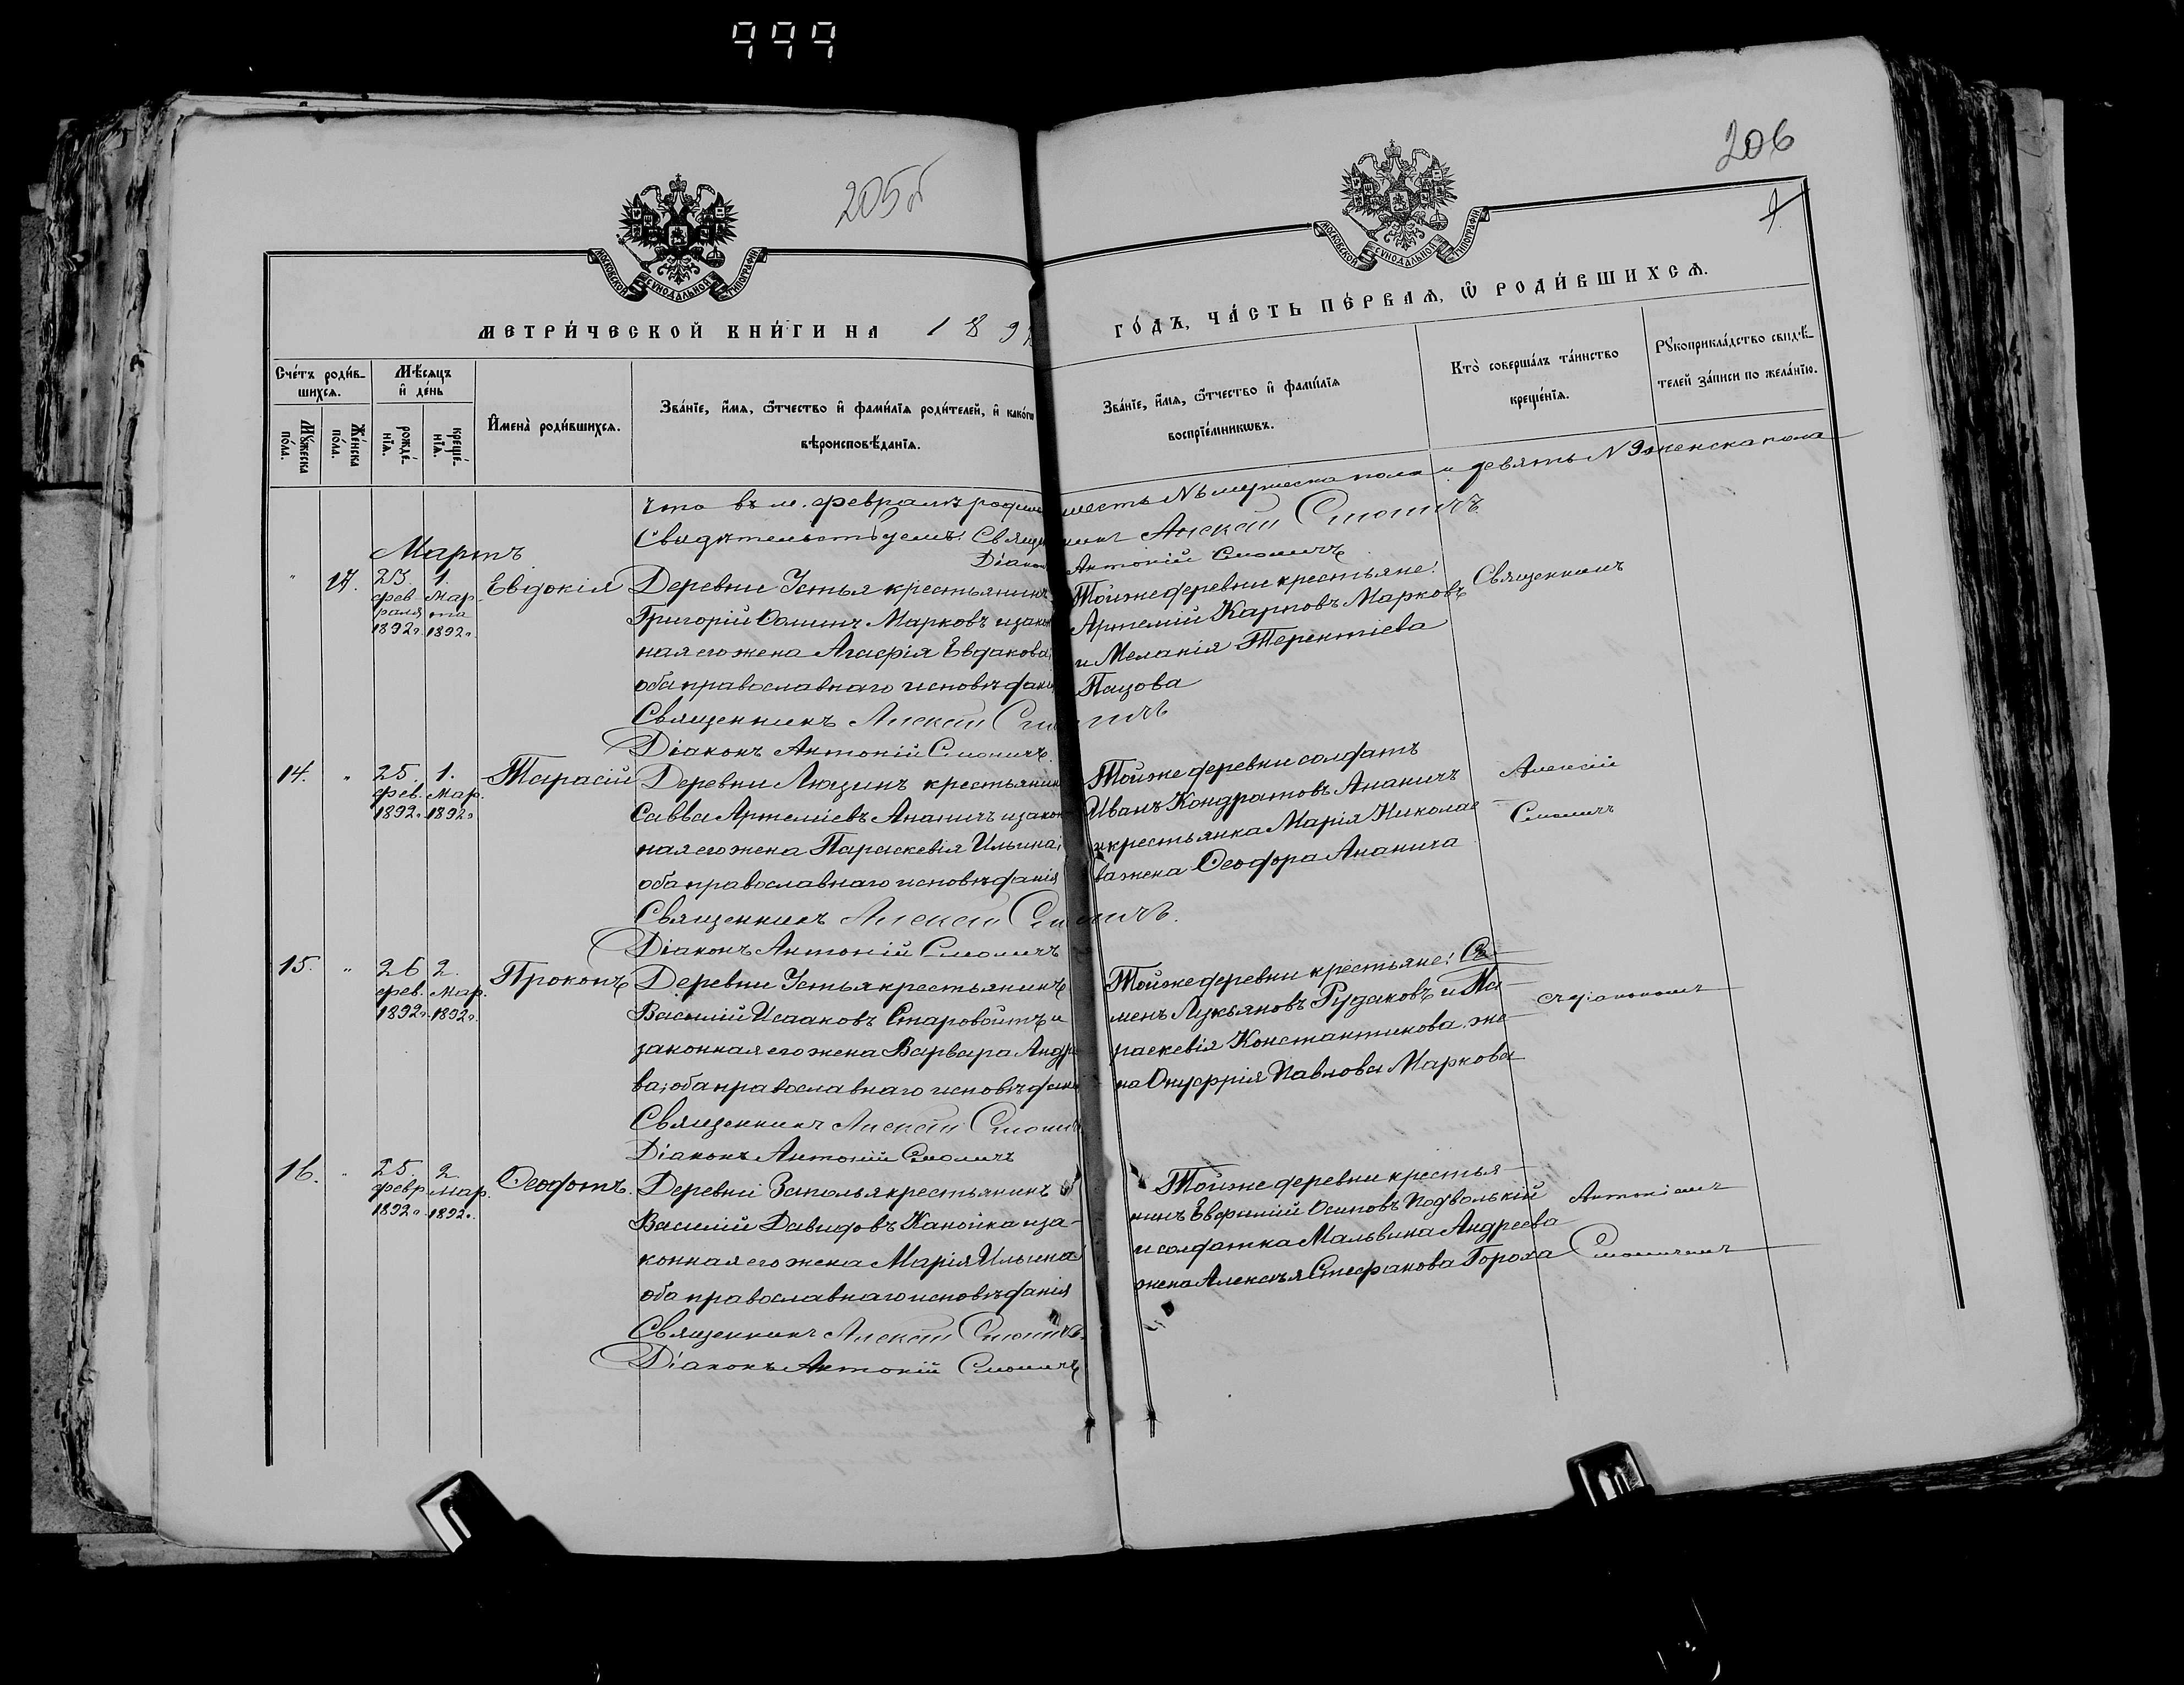 999
205б
206
МОСКОВСКОЙ СѴНОДАЛЬНОЙ ТИПОГРАФІИ
МОСКОВСКОЙ СѴНОДАЛЬНОЙ ТИПОГРАФІИ
МЕТРИ́ЧЕСКОЙ КНИ́ГИ НА 189
ГО́ДЪ, ЧА́СТЬ ПЕ́РВАѦ, Ѽ РОДИ́ВШИХСѦ.
Сче́тъ роди́в-
шихсѧ.
Мꙋ́жеска по́ла.
Же́нска по́ла.
Мѣ́сѧцъ и҆ де́нь
рожде́-
нїѧ.
креще́-
нїѧ.
И҆мена̀ роди́вшихсѧ.
Зва́нїе, и҆́мѧ, ѻ҆́тчество и҆ фами́лїѧ роди́телей, и҆ како́гѡ
вѣроисповѣ́данїѧ.
Зва́нїе, и҆́мѧ, ѻ҆́тчество и҆ фами́лїѧ
воспрїе́мникѡвъ.
Кто̀ соверша́лъ та́инство
креще́нїѧ.
Рꙋкоприкла́дство свидѣ́-
телей за́писи по жела́нїю.
Что въ м. февралѣ родил шесть №6 мужеска пола и девять №9 женска пола
Свидѣтельствуемъ: Священникъ Алексѣй Смоличъ
Діаконъ Антоній Смоличъ
Мартъ
" 17. 23. фев раля 1892г. 1. Мар та 1892г. Евдокія
Деревни Устья крестьянинъ
Григорій Ѳоминъ Марковъ и закон
ная его жена Агафія Евдакова;
оба православнаго исповѣдані
Священникъ Алексѣй Смоличъ
Діаконъ Антоній Смоличъ.
Тойже деревни крестьяне:
Артемій Карповъ Марковъ
и Меланія Терентіева
Пацова
Священникъ
14. " 25. фев. 1892г. 1. Мар. 1892г. Тарасій
Деревни Люзинъ крестьянин
Савва Артеміевъ Ананичъ и закон
ная его жена Параскевія Ильина;
оба православнаго исповѣданія
Священникъ Алексѣй Смоличъ.
Діаконъ Антоній Смоличъ
Тойже деревни солдатъ
Иванъ Кондратовъ Ананичъ
и крестьянка Марія Николае
ва жена Ѳеодора Ананича
Алексій
Смоличъ
15. " 26 фев. 1892г. 2. Мар. 1892г. Прокопъ
Деревни Устья крестьянинъ
Василій Исааковъ Старовойтъ и
законная его жена Варвара Андре
ва; оба православнаго исповѣдан
Священникъ Алексѣй Смолич
Діаконъ Антоній Смоличъ
Тойже деревни крестьяне: Се-
менъ Лукьяновъ Рудаковъ и Па-
раскевія Константинова, же-
на Онуфрія Павлова Маркова
съ діакономъ
16. " 25. февр. 1892г. 2. Мар. 1892г. Ѳеодотъ.
Деревни Заполья крестьянинъ
Василій Давидовъ Канойка и за-
конная его жена Марія Ильина
оба православнаго исповѣданія
Священникъ Алексѣй Смоличъ.
Діаконъ Антоній Смоличъ
Тойже деревни крестья-
нинъ Евфимій Осиповъ Подволькій
и солдатка Мальвина Андреева
жена Алексѣя Стефанова Гороха
Антоніемъ
Смоличемъ